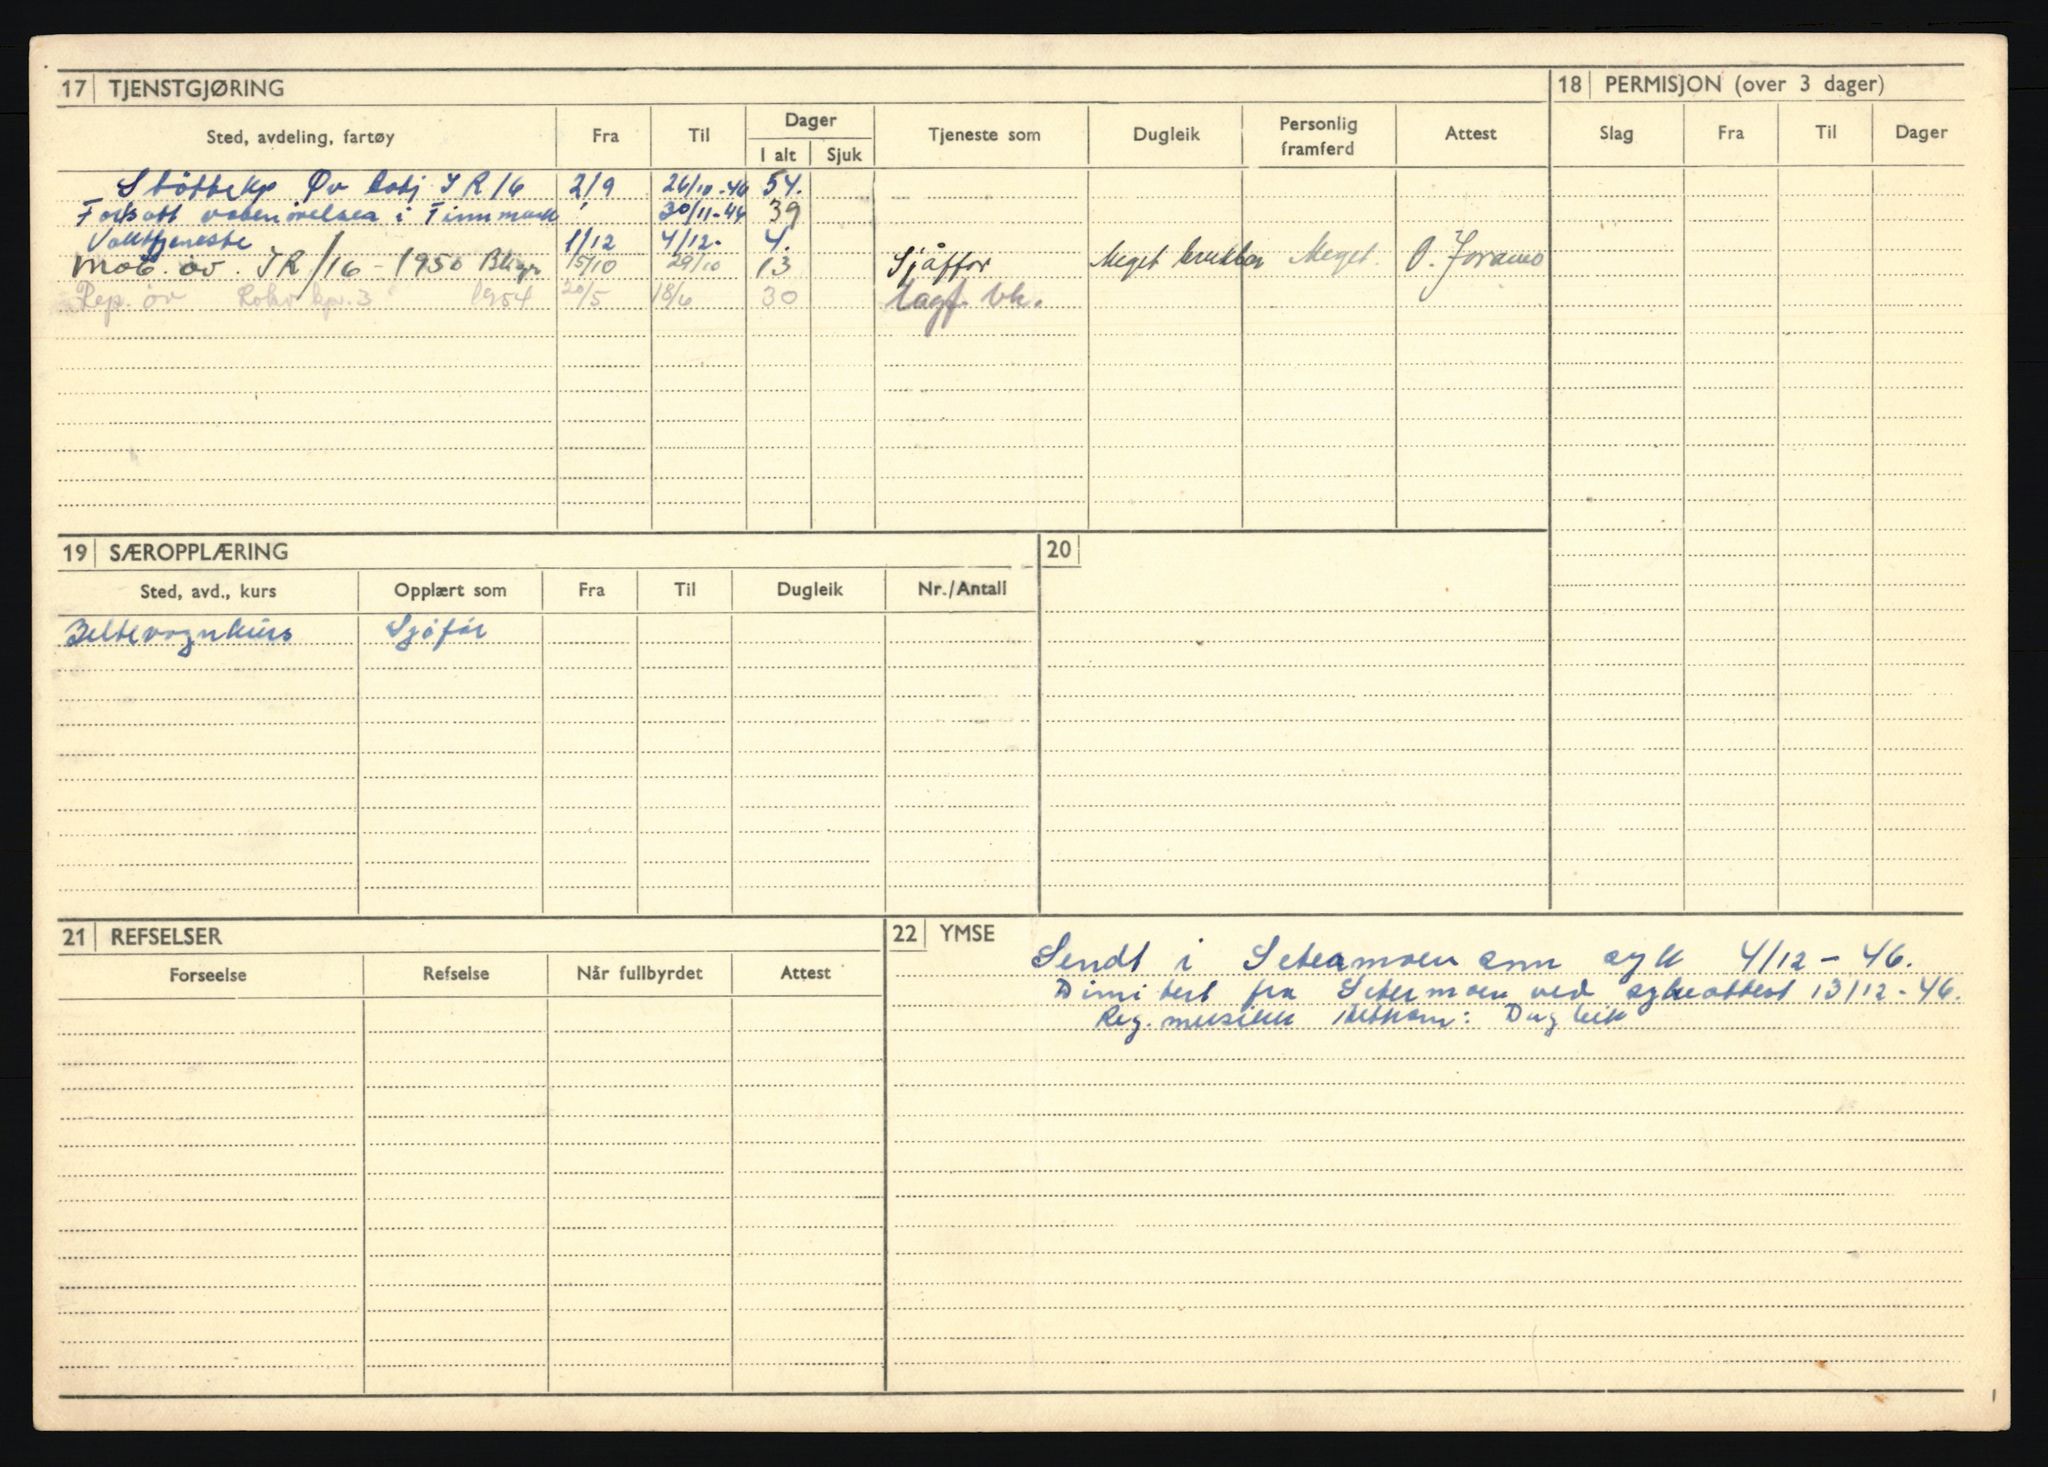 17 TJENSTGJØRING 18 PERMISJON (over 3 dager)
Sted, avdeling, fartøy Fra Til Dager Tjeneste som Dugleik Personlig framferd Attest Slag Fra Til Dager
I alt Sjuk
Støttekp Øv batj IR 16 2/9 26/10-46 54.
Fortsatt våbenövelser i Finnmark 30/11-46 39
Vakttjeneste 1/12 4/12- 4.
Mob. öv. IR/16 - 1950 15/10 29/10 13 Sjåffør Meget brukbar Meget.
Rep. öv kp. 3 1954 20/5 18/6 30 lagf.
19 SÆROPPLÆRING 20
Sted, avd., kurs Opplært som Fra Til Dugleik Nr./Antall
Beltevognkurs Sjöför
21 REFSELSER 22 YMSE
Forseelse Refselse Når fullbyrdet Attest
Sendt i Setermoen som syk 4/12 - 46.
Dimitert fra Setermoen ved sykeattest 13/12 - 46.
Reg. musikk Dugleik